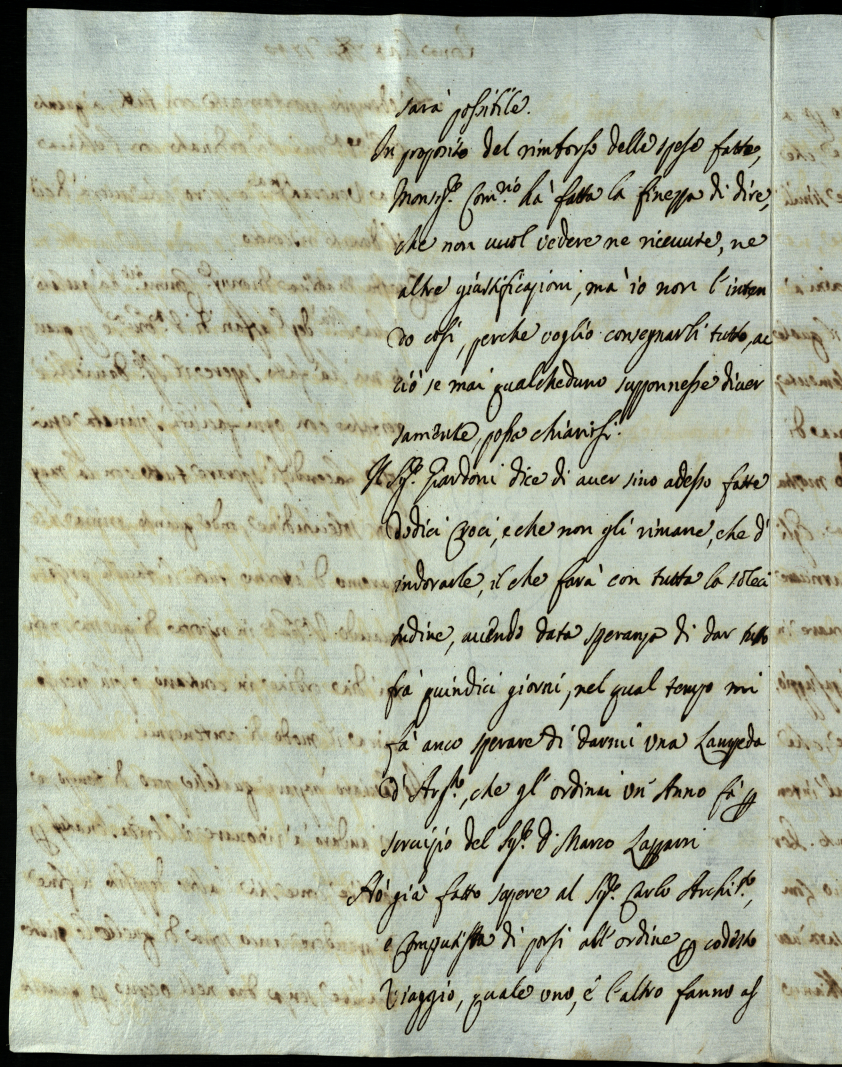 sarà possibile.
In proposito del rimborso delle spese fatte,
Monsig.r Com.rio hà fatta la finezza di dire,
che non vuol vedere ne riceuute, ne
altre giustificazioni, mà io non l'inten
do così, perche voglio consegnarli tutto, ac
ciò se mai qualcheduno supponnesse diuer
samente, possa chiarirsi.
Il Sig.r Giardoni dice di auer sino adesso fatte
dodici Croci, e che non gli rimane, che d'
indorarle, il che farà con tutta la soleci
tudine, auendo data speranza di dar tutto
frà quindici giorni, nel qual tempo mi
fà anco sperare di darmi una Lampada
d'Arg.to, che gl'ordinai un'Anno fà p
seruizio del Sig.r D. Marco Lazzarri
Hò già fatto sapere al Sig.r Carlo Archit.to,
e Computista di porsi all'ordine p codesto
Viaggio, quale uno, e l'altro fanno as